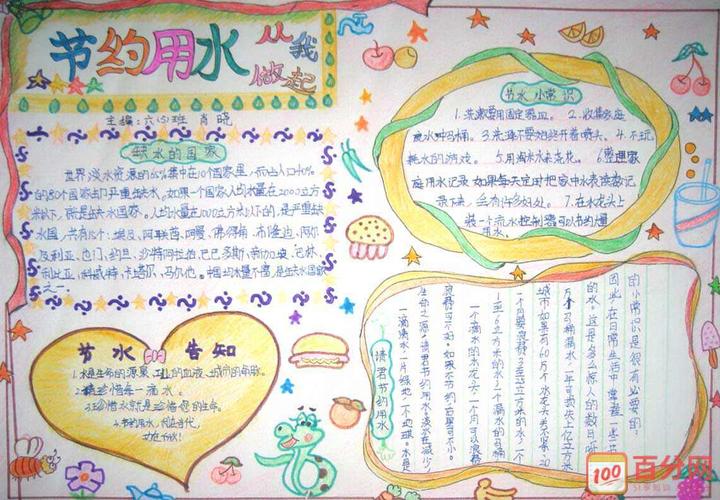 节约用水 从我做起
主编：六(2)班 肖晓
缺水的国家
世界淡水资源的65%集中在10个国家里，而占人口40%
的80个国家却严重缺水。如果一个国家人均水量在2000立方
米以下，就是缺水国家。人均水量在1000立方米以下的，是严重缺
水国，共有15个：埃及、阿联酋、阿曼、佛得角、布隆迪、阿尔
及利亚、也门、约旦、沙特阿拉伯、巴巴多斯、新加坡、巴林、
利比亚、科威特、卡塔尔、马尔他。中国均水量不富，是缺水国家
之一。
节水告知
1.水是生命的源泉、工业的血液、城市的命脉。
2.请珍惜每一滴水。
3.珍惜水就是珍惜您的生命。
4.节约用水，利在当代，
功在千秋！
节水小常识
1.洗漱要用固定器皿。 2.收集家庭
废水冲马桶。3.洗澡不要始终开着喷头、4.不玩
耗水的游戏。 5.用淘米水去浇花。 6.整理家
庭用水记录，如果每天定时把家中水表读数记
录下来，会有许多好处。 7.在水龙头上
装一个流水控制器可以节约量
用水。
请君节约用水
一滴滴水，一片绿地，一个地球。水是
生命之源，请君节约用水，淡水在减少，
浪费可不好，如果不节约，后果可不小。
一个滴水的水龙头，一个月可以浪费
1至6立方米的水；一个漏水的马桶，
一个月要浪费3至25立方米的水，一个
城市如果有60万个水龙头关不紧，20
万个马桶漏水，一年可损失上亿立方米
的水。这是多么惊人的数目呀！
因此，在日常生活中，掌握一些节水
的小常识是很有必要的！
100
百分网